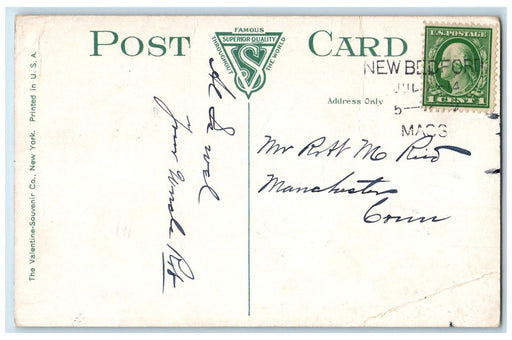 POST CARD
FAMOUS
SUPERIOR QUALITY
THROUGHOUT THE WORLD
VS
U.S. POSTAGE
1 CENT 1
NEW BEDFORD
JUL 4
5—
MASS
Address Only
Mr Robt Mc Reid
Manchester
Conn
Al is well
Your Uncle Robt
The Valentine-Souvenir Co., New York. Printed in U. S. A.